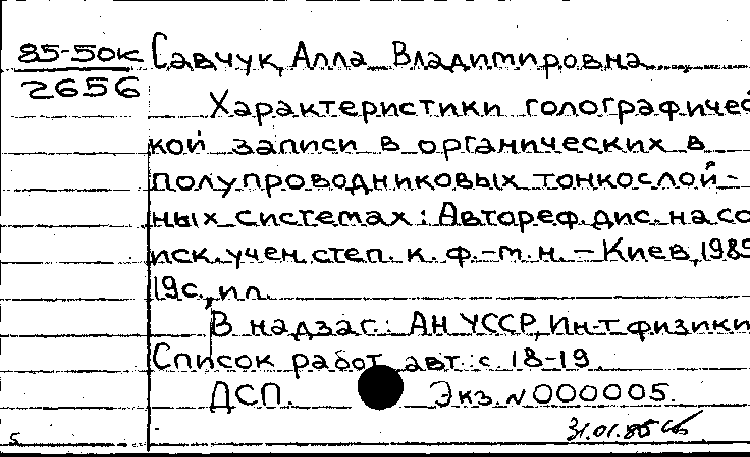 85-50к Савчук, Алла Владимировна
2656
Характеристики голографичес
кой записи в органических в
полупроводниковых тонкослой-
ных системах: Автореф. дис. на со
иск. учен. степ. к. ф.-м. н. – Киев, 1985
19с., ил.
В надзаг.: АН УССР, Ин-т физики
Список работ авт.: с. 18-19.
ДСП. Экз. № 000005.
31.01.85
5